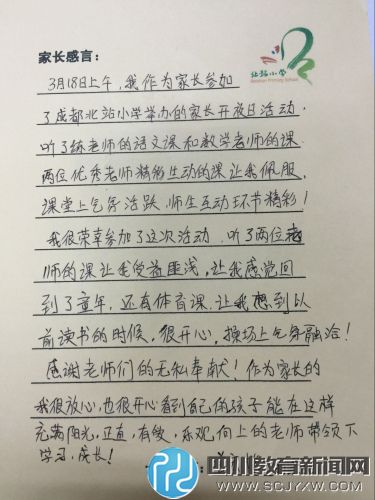 家长感言：
北站小学
3月18日上午，我作为家长参加
了成都北站小学举办的家长开放日活动，
听了练老师的语文课和数学老师的课
两位优秀老师精彩生动的课让我佩服，
课堂上气氛活跃，师生互动环节精彩！
我很荣幸参加了这次活动，听了两位
师的课让我受益匪浅，让我感觉回
到了童年，还有体育课让我想到以
前读书的时候，很开心，操场上气氛融洽！
感谢老师们的无私奉献！作为家长的
我很放心，也很开心看到自己的孩子能在这样
充满阳光，正直，有爱，乐观，向上的老师带领下
学习，成长！
四川教育新闻网
WWW.SCJYXW.COM